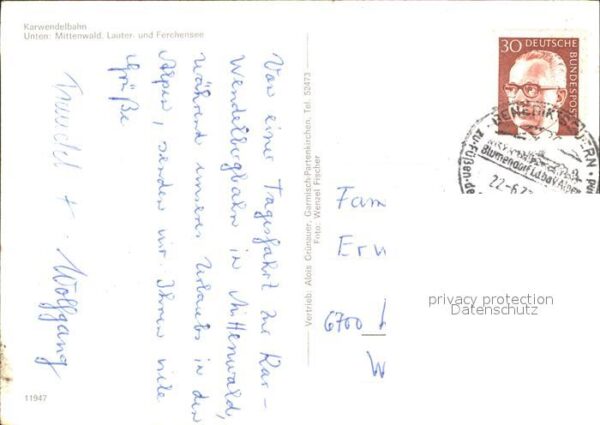 Karwendelbahn
Unten: Mittenwald. Lauter- und Ferchensee
Von einer Tagesfahrt zur Kar-
wendelbergbahn in Mittenwald,
während unseres Urlaubs in den
Alpen, senden wir Ihnen viele
Grüße
+ Wolfgang
11947
Vertrieb: Alois Grünauer, Garmisch-Partenkirchen, Tel. 52473
Foto: Wenzel Fischer
30 DEUTSCHE
BUNDESPOST
BENEDIKTBEUERN
Blumendorf
22-6.7
Fam
Erw
6700
W
privacy protection
Datenschutz